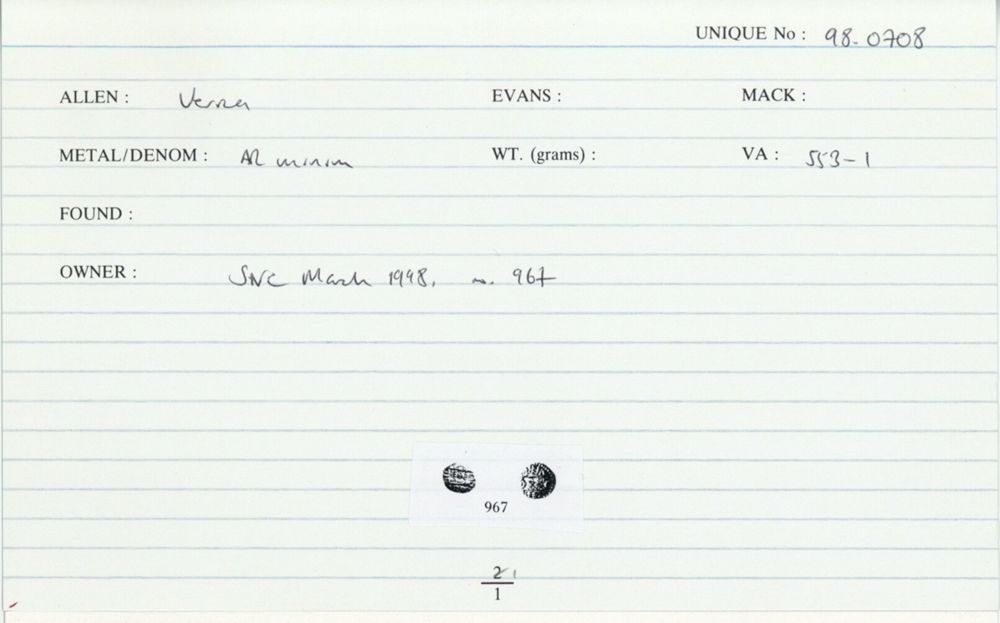 UNIQUE No : 98.0708
ALLEN : Verica EVANS : MACK :
METAL/DENOM : AR minim WT. (grams) : VA : 553-1
FOUND :
OWNER : SNC March 1998, no. 967
967
2 1
1